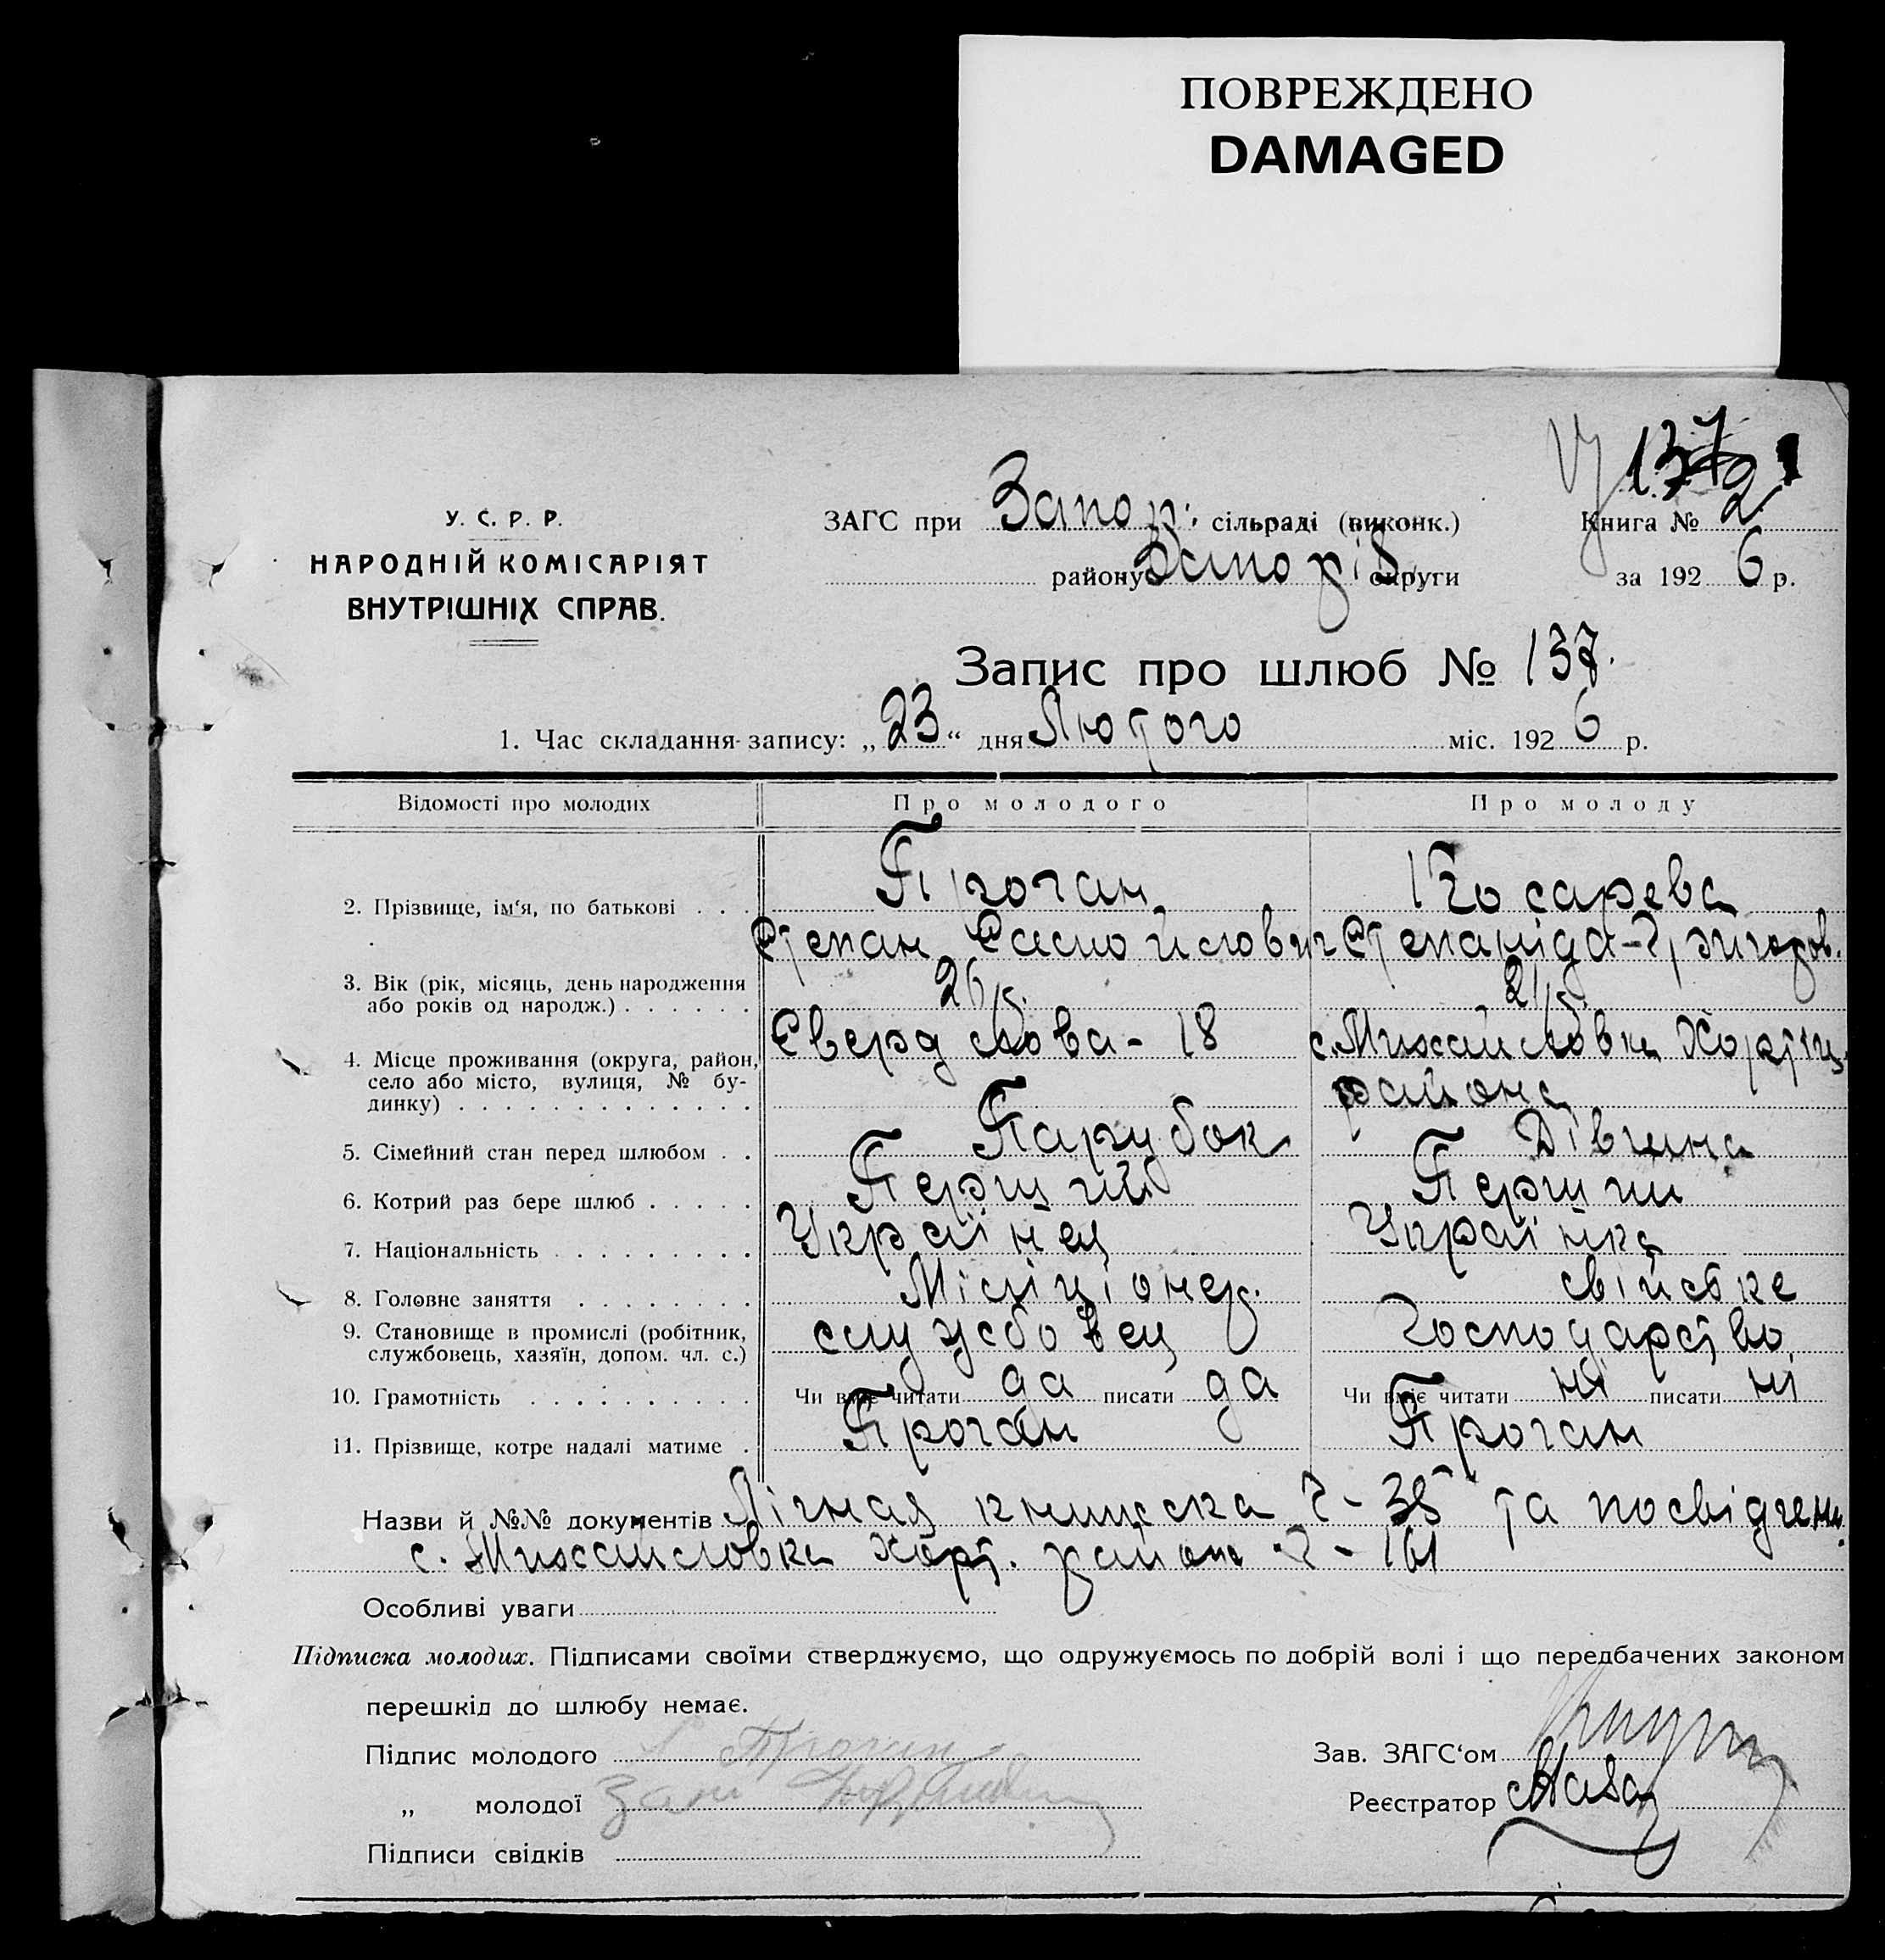 ПОВРЕЖДЕНО
DAMAGED
137
У. С. Р. Р.
НАРОДНІЙ КОМІСАРІЯТ
ВНУТРІШНІХ СПРАВ.
ЗАГС при Запор. сільраді (виконк.)
району Запорів округи
Книга № 2
за 1926 р.
Запис про шлюб № 137.
1. Час складання запису: „23“ дня Лютого міс. 1926 р.
Відомості про молодих Про молодого Про молоду
2. Прізвище, ім‘я, по батькові . . . Прочан Косарева
Степан Самойлович Степаніда Григоров.
3. Вік (рік, місяць, день народження
або років од народж.) . . . . . . 26 р. 21 р.
4. Місце проживання (округа, район, село або місто, вулиця, № будинку) . . . Свердлова - 18 с. Михайловка Хортиц.
района
5. Сімейний стан перед шлюбом . . Парубок Дівчина
6. Котрий раз бере шлюб . . . . . Перший Перший
7. Національність . . . . . . . . . Українец Українка
8. Головне заняття . . . . . . . . Міліціонер. свійське
9. Становище в промислі (робітник,
службовець, хазяїн, допом. чл. с.) службовец Господарство
10. Грамотність . . . . . . . . . . Чи вміє читати да писати да Чи вміє читати ні писати ні
11. Прізвище, котре надалі матиме . Прочан Прочан
Назви й №№ документів Лічная книжска Ч - 35 та посвідчен.
с. Михайловка Хорт. район Ч - 161
Особливі уваги
Підписка молодих. Підписами своїми стверджуємо, що одружуємось по добрій волі і що передбачених законом
перешкід до шлюбу немає.
Підпис молодого Прочан
Зав. ЗАГС‘ом
„ молодої
Реєстратор
Підписи свідків